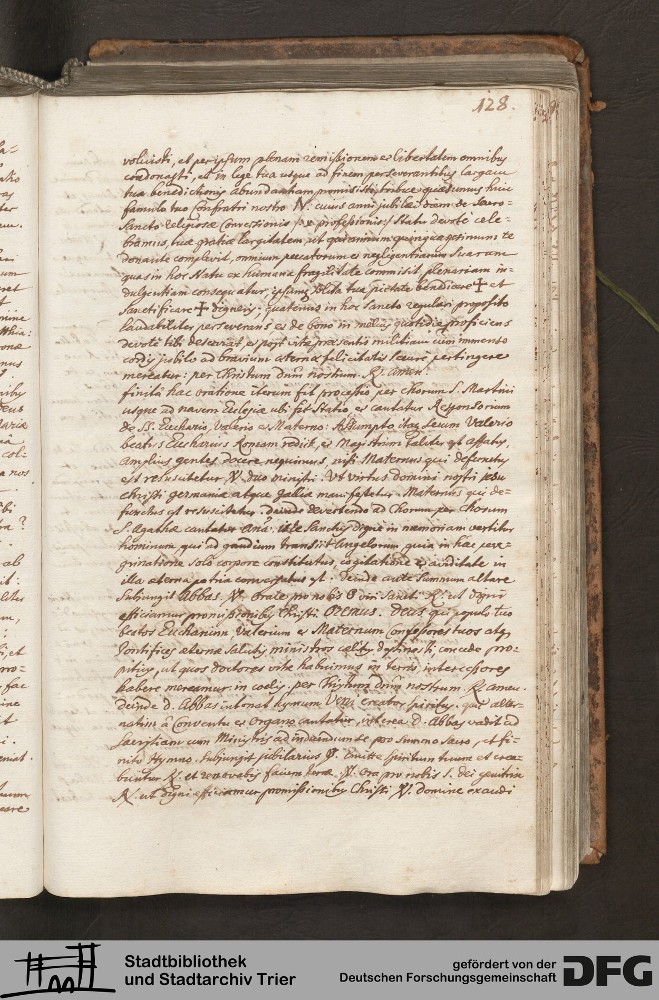 128.
voluisti, et per ipsum plenam remissionem et libertatem omnibus
condonasti, et in lege tua usque ad finem perseverantibus largam
tua benedictionis abundantiam promisisti, tribue quæsumus huic
famulo tuo Confratri nostro N. cuius anni jubilæi diem de Sacro-
Sancto religiosæ Conversionis (seu professionis) statu devote cele-
bramus, tuæ gratiæ largitatem, ut quatenus quinquagesimum te
donante complevit, omnium peccatorum et negligentiarum suarum
quas in hoc statu ex humana fragilitate commisit, plenariam in-
dulgentiam consequatur, ipsumq solita tua pietate benedicere ✝ et
Sanctificare ✝ digneris, quatenus in hoc sancto regulari proposito
laudabiliter perseverans et de bono in melius quotidie proficiens
devote tibi deserviat, et post vitæ præsentis militiam cum immenso
cordis jubilo ad bravium æternæ felicitatis secure pertingere
mereatur: per Christum dnm nostrum. R. amen.
finita hac oratione iterum fit processio per chorum S. Martini
usque ad navem Ecclesiæ ubi fit statio, et cantatur Responsorium
de SS. Euchario, Valerio et Materno: Assumpto itaq secum Valerio
beatus Eucharius Romam rediit, et Magistrum taliter est affatus,
Amplius gentes docere nequimus, nisi Maternus qui defunctus
est resuscitetur, V. duo ministri. Ut virtus domini nostri jesu
christi germaniæ atque galliæ manifestetur. Maternus qui de-
functus est resuscitetur. deinde revertendo ad Chorum per chorum
S. Agathæ cantatur ana. iste Sanctus digne in memoriam vertitur
hominum, qui ad gaudium transiit Angelorum, quia in hac pere-
grinatione solo corpore constitutus, cogitatione et aviditate in
illa æterna patria conversatus est. deinde ante Summum altare
Subjungit Abbas. V. Orate pro nobis O viri Sancti. R. ut digni
efficiamur promissionibus Christi. OREMUS. Deus qui populo tuo
beatos Eucharium, Valerium et Maternum Confessores tuos atq
Pontifices æternæ salutis ministros cælitus destinasti, concede pro-
pitius, ut quos doctores vitæ habuimus in terris, intercessores
habere mereamur in cœlis, per Christum dnm nostrum. R. amen.
deinde d. Abbas intonat hymnum Veni creator spiritus, qui alter-
natim à Conventu et Organo cantatur, interea d. Abbas vadit ad
Sacristiam cum Ministris ad induendum se pro Summo Sacro, et fi-
nito Hymno Subjungit jubilarius V. Emitte spiritum tuum et crea-
buntur R. et renovabis faciem terræ. V. Ora pro nobis S. dei genitrix
R. ut digni efficiamur promissionibus Christi. V. domine exaudi
Stadtbibliothek
und Stadtarchiv Trier
gefördert von der
Deutschen Forschungsgemeinschaft
DFG